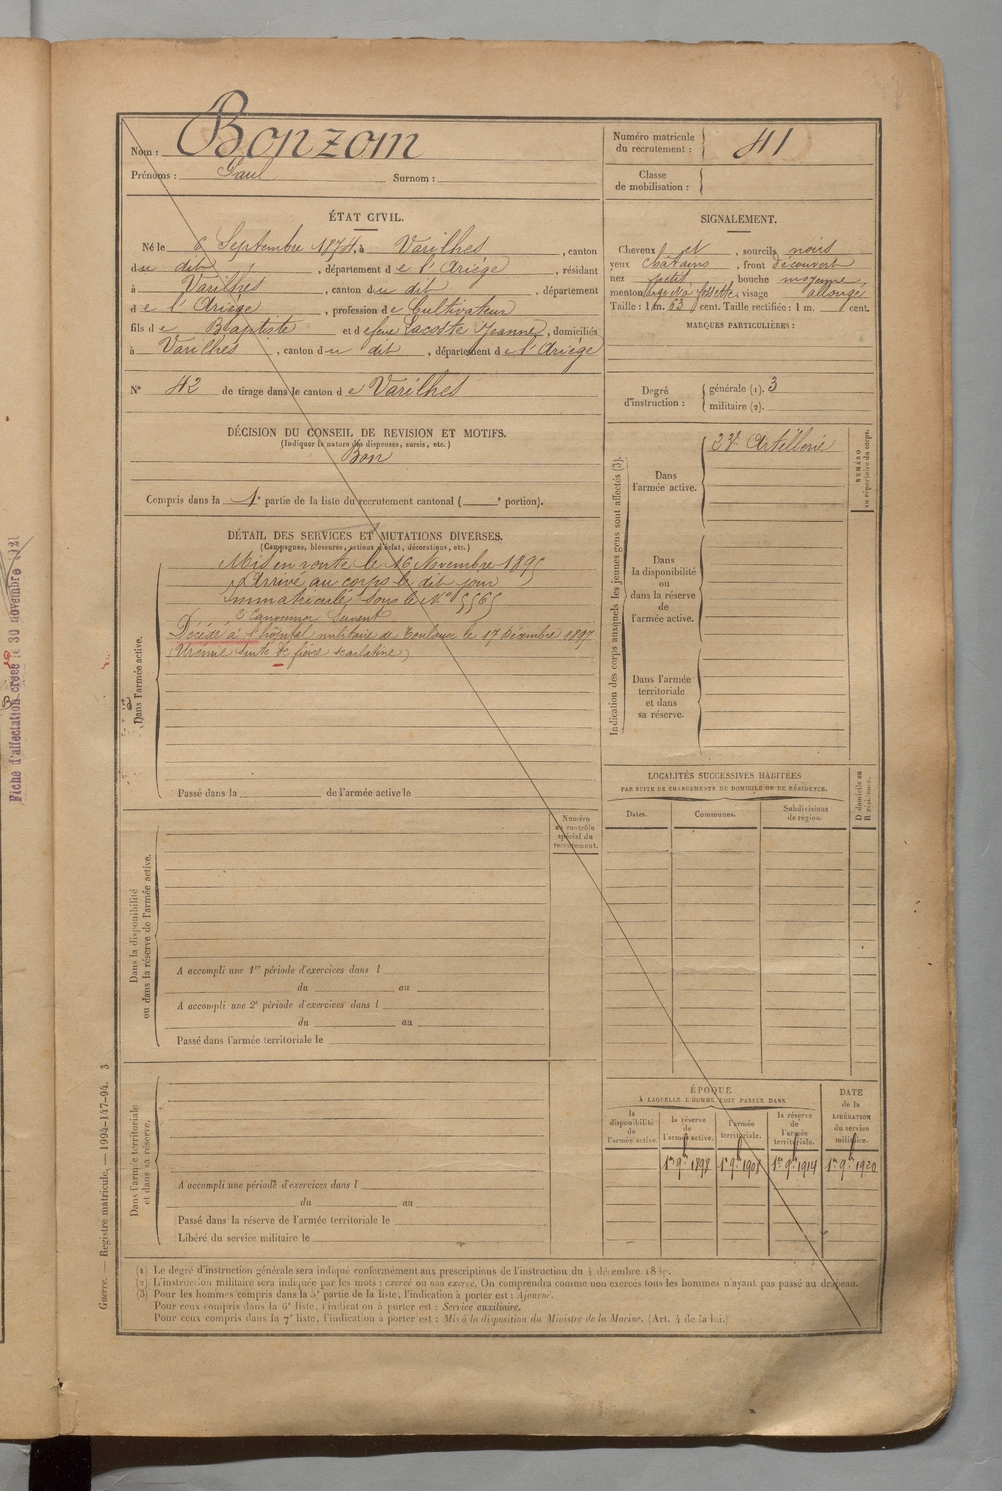 Nom : Bonzom
Prénoms : Paul Surnom :
Numéro matricule du recrutement : 41
Classe de mobilisation :
ÉTAT CIVIL.
Né le 6 Septembre 1874, à Varilhes, canton
du dit, département de l'Ariége, résidant
à Varilhes, canton du dit, département
de l'Ariége, profession de Cultivateur
fils de Baptiste et de feue Lacoste Jeanne, domiciliés
à Varilhes, canton du dit, département de l'Ariége
N° 42 de tirage dans le canton de Varilhes
DÉCISION DU CONSEIL DE REVISION ET MOTIFS.
(Indiquer la nature des dispenses, sursis, etc.)
Bon
Compris dans la 1e partie de la liste du recrutement cantonal ( e portion).
SIGNALEMENT.
Cheveux et, sourcils noirs
yeux châtains, front découvert
nez petit, bouche moyenne
menton fossette, visage allongé
Taille : 1 m. 63 cent. Taille rectifiée : 1 m. cent.
MARQUES PARTICULIÈRES :
Degré d'instruction : générale (1). 3
militaire (2).
DÉTAIL DES SERVICES ET MUTATIONS DIVERSES.
(Campagnes, blessures, actions d'éclat, décorations, etc.)
Dans l'armée active.
Mis en route le 16 Novembre 1895
Arrivé au corps le dit jour
Immatriculé sous le N° 5565
2e Canonnier Servant
Décédé à l'hôpital militaire de Toulouse le 17 Décembre 1897
(Urémie suite de fièvre scarlatine)
Passé dans la de l'armée active le
Indication des corps auxquels les jeunes gens sont affectés (3).
Dans l'armée active. 23e Artillerie
NUMÉRO au répertoire du corps.
Dans la disponibilité ou dans la réserve de l'armée active.
Dans l'armée territoriale et dans sa réserve.
LOCALITÉS SUCCESSIVES HABITÉES
PAR SUITE DE CHANGEMENTS DE DOMICILE OU DE RÉSIDENCE.
Dates. Communes. Subdivisions de région. D domicile ou R résidence.
Numéro au contrôle spécial du recrutement.
Dans la disponibilité ou dans la réserve de l'armée active.
A accompli une 1re période d'exercices dans l
du au
A accompli une 2e période d'exercices dans l
du au
Passé dans l'armée territoriale le
Dans l'armée territoriale et dans sa réserve.
A accompli une période d'exercices dans l
du au
Passé dans la réserve de l'armée territoriale le
Libéré du service militaire le
ÉPOQUE
À LAQUELLE L'HOMME DOIT PASSER DANS
la disponibilité de l'armée active.
la réserve de l'armée active. 1er 9bre 1898
l'armée territoriale. 1er 9bre 1908
la réserve de l'armée territoriale. 1er 9bre 1914
DATE de la LIBÉRATION du service militaire. 1er 9bre 1920
(1) Le degré d'instruction générale sera indiqué conformément aux prescriptions de l'instruction du 4 décembre
(2) L'instruction militaire sera indiquée par les mots : exercé ou non exercé. On comprendra comme non exercés tous les hommes n'ayant pas passé au drapeau.
(3) Pour les hommes compris dans la 5e partie de la liste, l'indication à porter est : Ajourné.
Pour ceux compris dans la 6e liste, l'indication à porter est : Service auxiliaire.
Pour ceux compris dans la 7e liste, l'indication à porter est : Mis à la disposition du Ministre de la Marine. (Art. 4 de la loi.)
Guerre. — Registre matricule. — 1994-147-94. 3
Fiche d'affectation créée le 30 novembre 1921